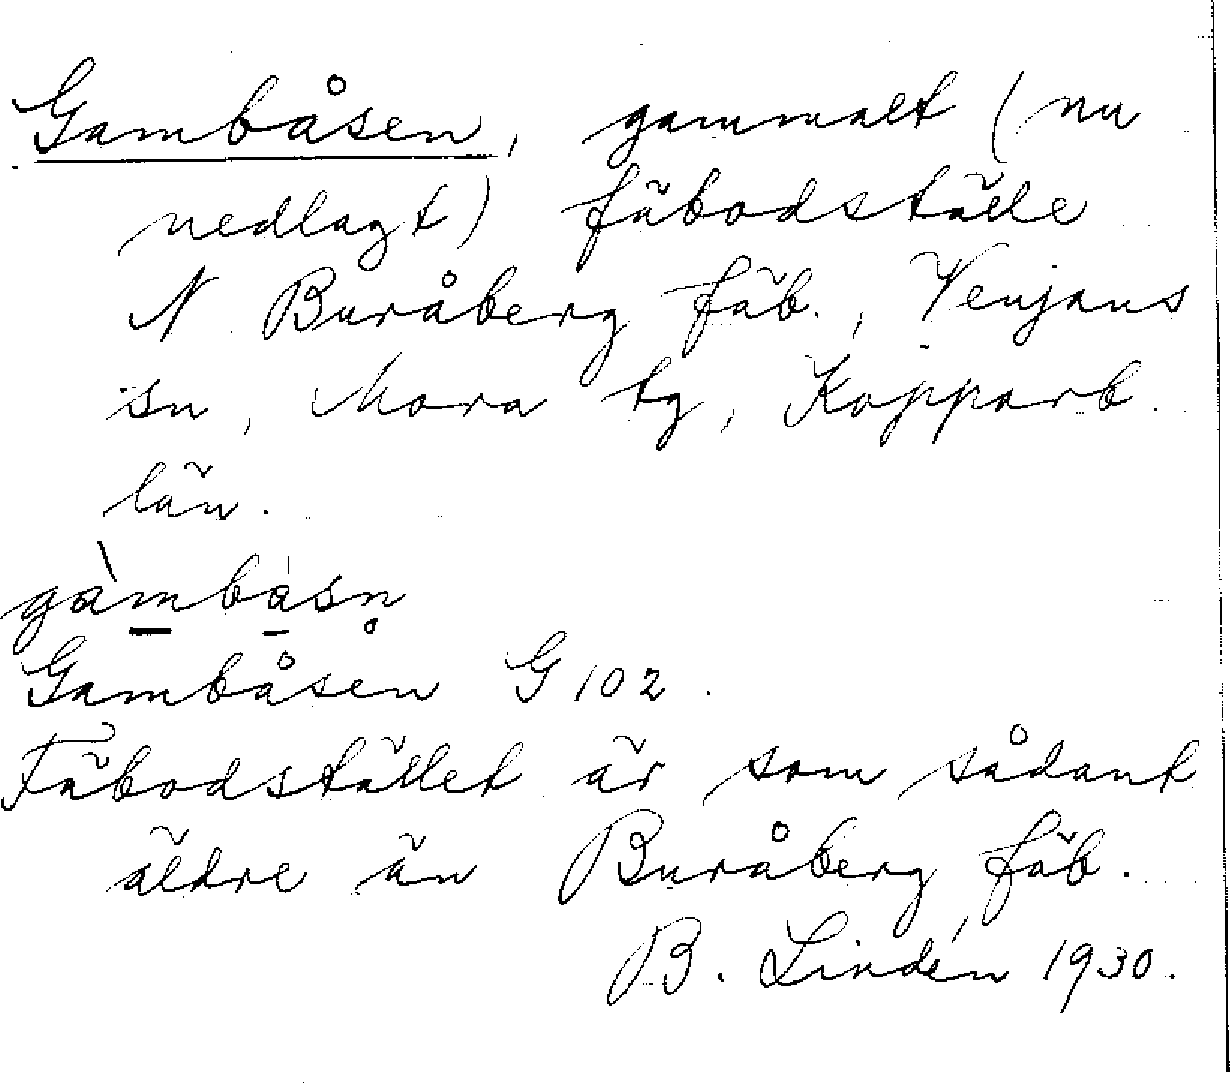 Gambåsen, gammalt (nu
nedlagt) fäbodställe
N Buråberg fäb., Venjans
sn, Mora tg, Kopparb.
län.
gàmbåsn̥
Gambåsen G 102.
Fäbodstället är som sådant
äldre än Buråberg fäb.
B. Lindén 1930.